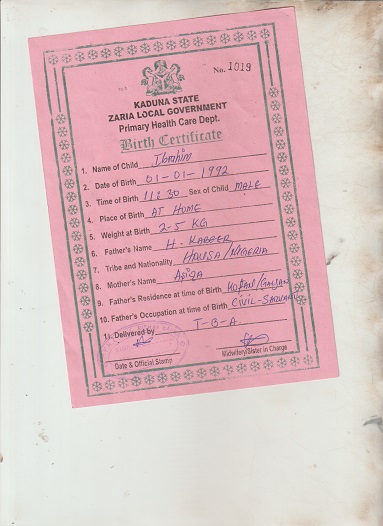 No. 1019
KADUNA STATE
ZARIA LOCAL GOVERNMENT
Primary Health Care Dept.
Birth Certificate
1. Name of Child Ibrahim
2. Date of Birth 01-01-1992
3. Time of Birth 11:30 Sex of Child MALE
4. Place of Birth AT HOME
5. Weight at Birth 2-5 KG
6. Father's Name H. KABEER
7. Tribe and Nationality HAUSA/NIGERIA
8. Mother's Name
9. Father's Residence at time of Birth KOFAN/
10. Father's Occupation at time of Birth CIVIL-
11. Delivered by T-B-A
Date & Official Stamp
Midwifery/Sister in Charge